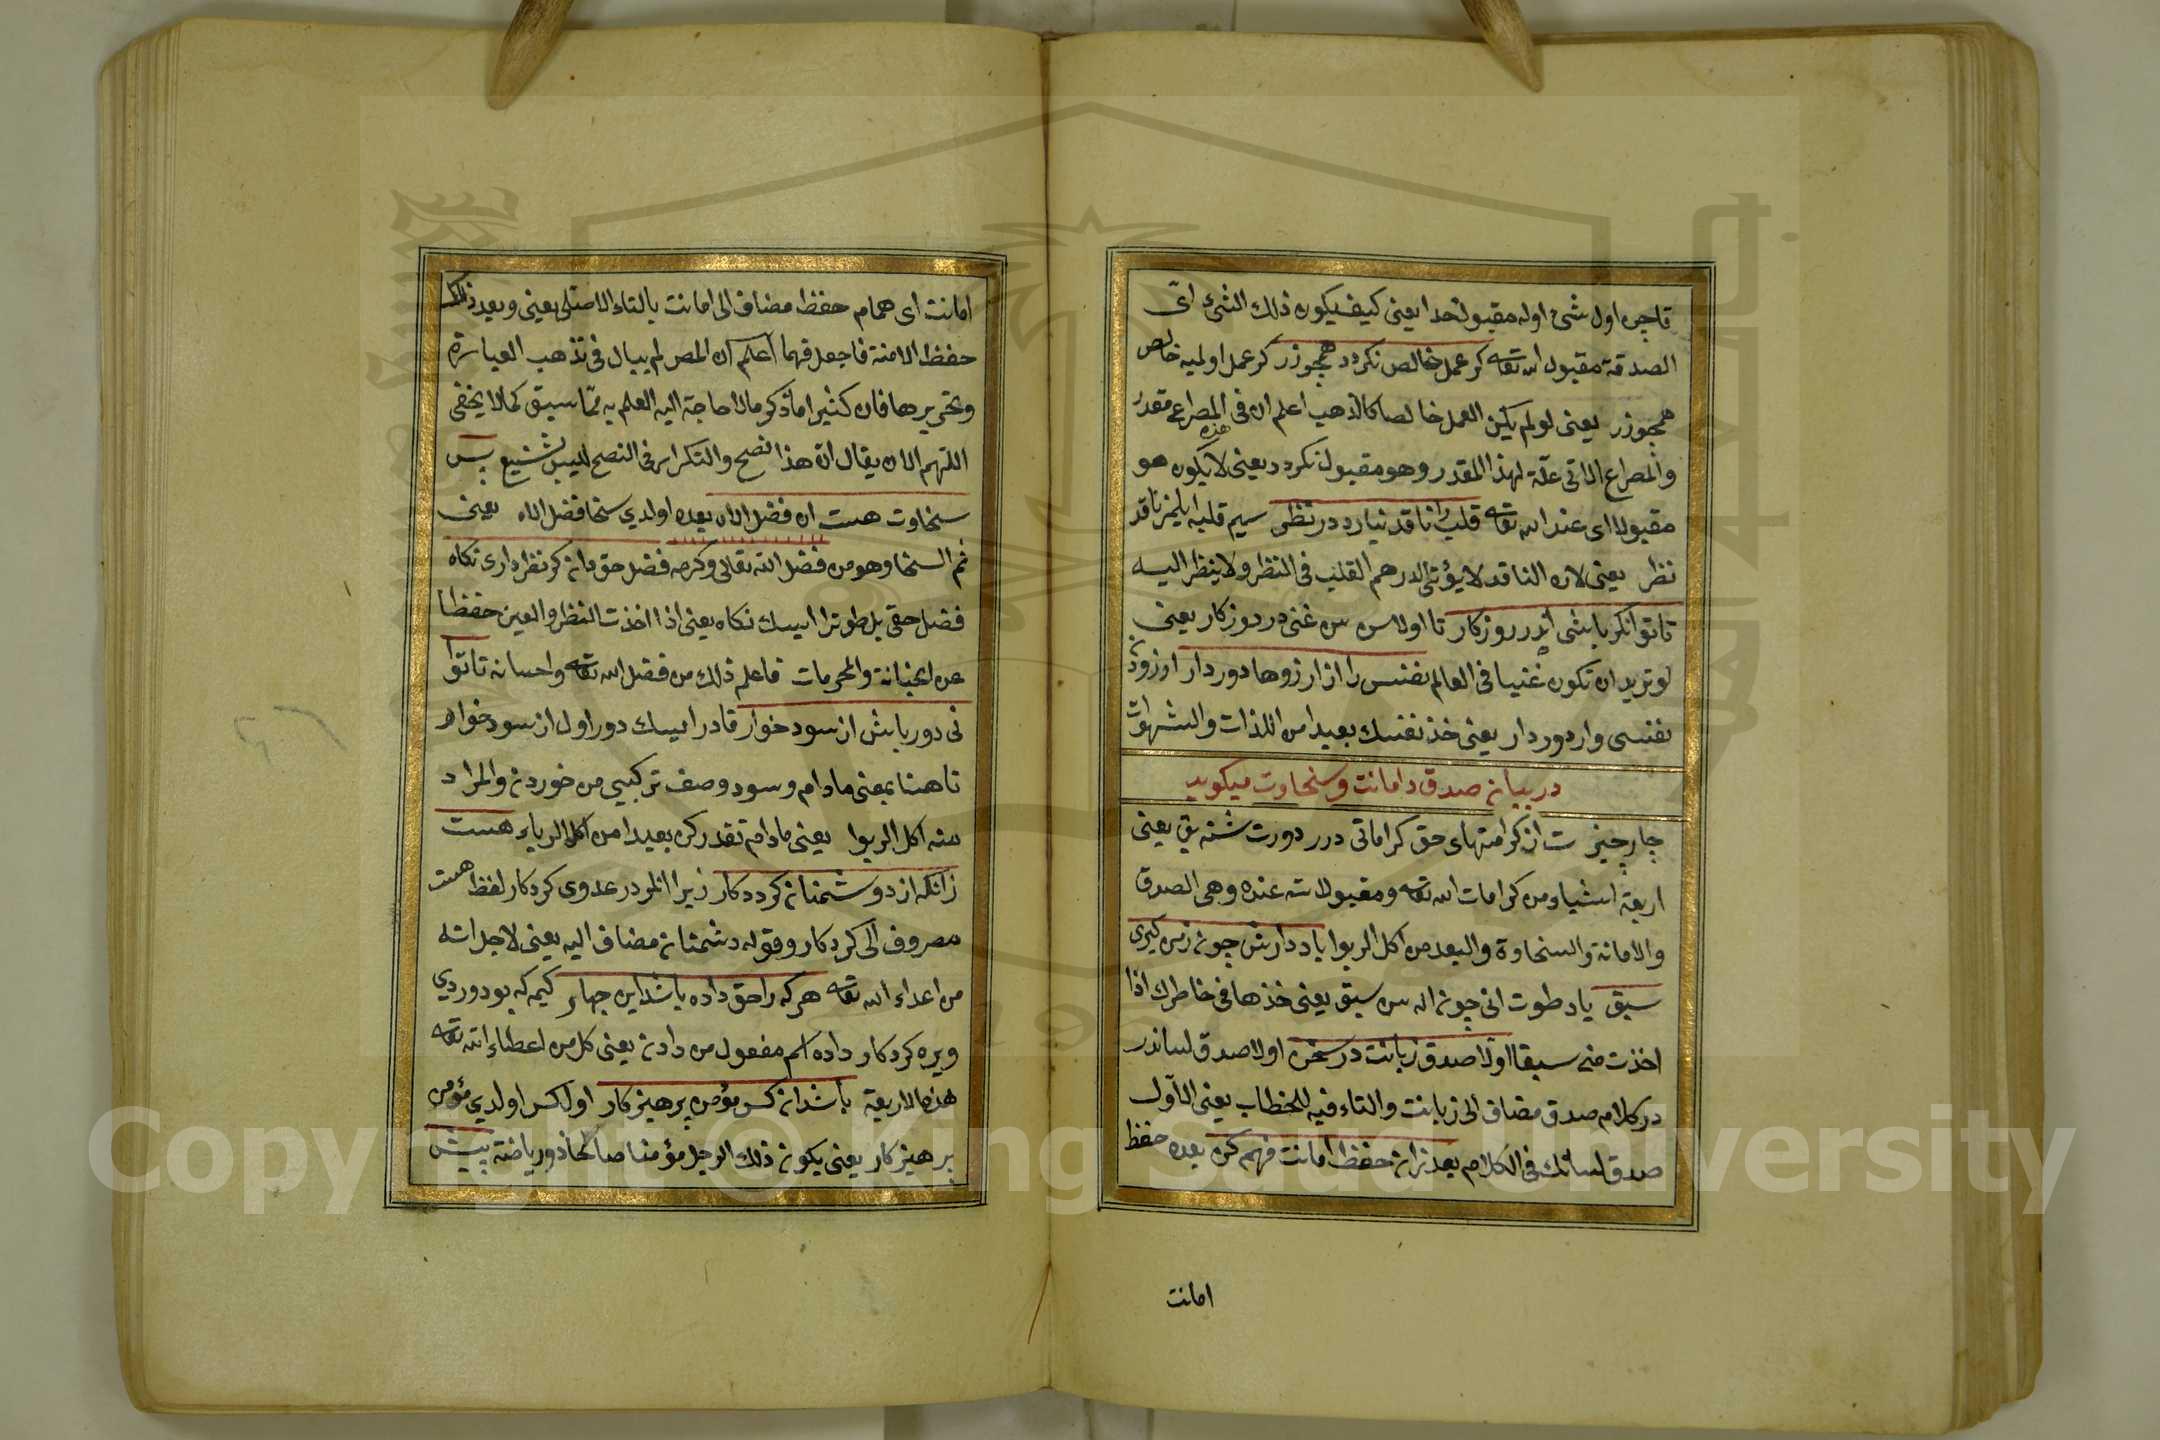 قاچره اول شئ اوله مقبول خدا يعنى كيف يكون ذلك الشئ اىّ
الصدقة مقبول الله تعه كر عمل خالص نكردد همچوزر كر عمل اولميه خالص
همچوزر يعنى لو لم يكن العمل خالصا كالذهب اعلم ان فى هذه المصراع مقدر
والمصراع الاتى علّة لهذا المقدر وهو مقبول نكردد يعنى لا يكون هو
مقبولا اى عند الله تعه قلب را ناقد نيارد در نظر سيم قلبه ايلمز ناقد
نظر يعنى لان الناقد لا يؤتى الدرهم القلب فى النظر ولا ينظر اليه
تا توانكر باشى اندر روزكار تا اولاسن سن غنى در روزكار يعنى
لو تريد ان تكون غنيا فى العالم نفس را از ارزوها دور دار
نفسى وار دور دار يعنى خذ نفسك بعيدا من اللذات والشهوات
در بيان صدق و امانت و سخاوت ميكويد
چار چيز ست از كرامتهاى حق كراماتى در دورت شئه يق يعنى
اربعة اشياء من كرامات الله تعه ومقبولاته عنده وهى الصدق
والامانة والسخاوة والبعد من اكل الربوا ياد دارش چون زمن كيرى
سبق ياد طوت انى چون اله سن سبق يعنى خذها فى خاطرك اذا
اخذت منى سبقا اوّلا صدق زبانت در سخن اولا صدق لساندر
در كلام صدق مضاف الى زبانت والتاء فيه للخطاب يعنى الاول
صدق لسانك فى الكلام بعد زان حفظ امانت فهم كن بعده حفظ
امانت
امانت اى همام حفظ مضاف الى امانت بالتاء الاصلى يعنى وبعد ذلك
حفظ الامنة فاجعل فهما اعلم ان المص لم يبال فى تذهب العبارة
وتحريرها فان كثيرا ما ذكر مالا حاجة اليه العلم به ممّا سبق كما لا يخفى
اللهم الا ان يقال انّ هذا نصح والتكرار فى النصح ليس بشنيع پس
سخاوت هست ان فضل الاه بعده اولدي سخا فضل الاه يعنى
ثم السخا وهو من فضل الله تعالى وكرمه فضل حق دان كر نظر دارى نكاه
فضل حق بل طوترا ايسك نكاه يعنى اذا اخذت النظر والعين حفظا
عن الخيانة والمحرمات فاعلم ذلك من فضل الله تعه واحسانه تا توا
نى دور باش از سود خوار قادر ايسك دور اول از سود خوار
تا هنا بمعنى مادام وسود وصف تركيبى من خوردن والمراد
منه اكل الربوا يعنى مادام تقدر كن بعيدا من اكل الربا هست
زانكه از دوشمنان كردكار زيرا انلر در عدوى كردكار لفظ هست
مصروف الى كردكار وقوله دشمنان مضاف اليه يعنى لاجل انه
من اعداء الله تعه هركه را حق داده باشد اين چهار كيمه كه بو دوردي
ويره كردكار داده اسم مفعول من دادن يعنى كل من اعطاء الله تعه
هذه الاربعة باشد ان كس مؤمن پرهيزكار اول كس اولدي مؤمن
پرهيزكار يعنى يكون ذلك الرجل مؤمنا صالحا ذو رياضة پيش
Copyright © King Saud University